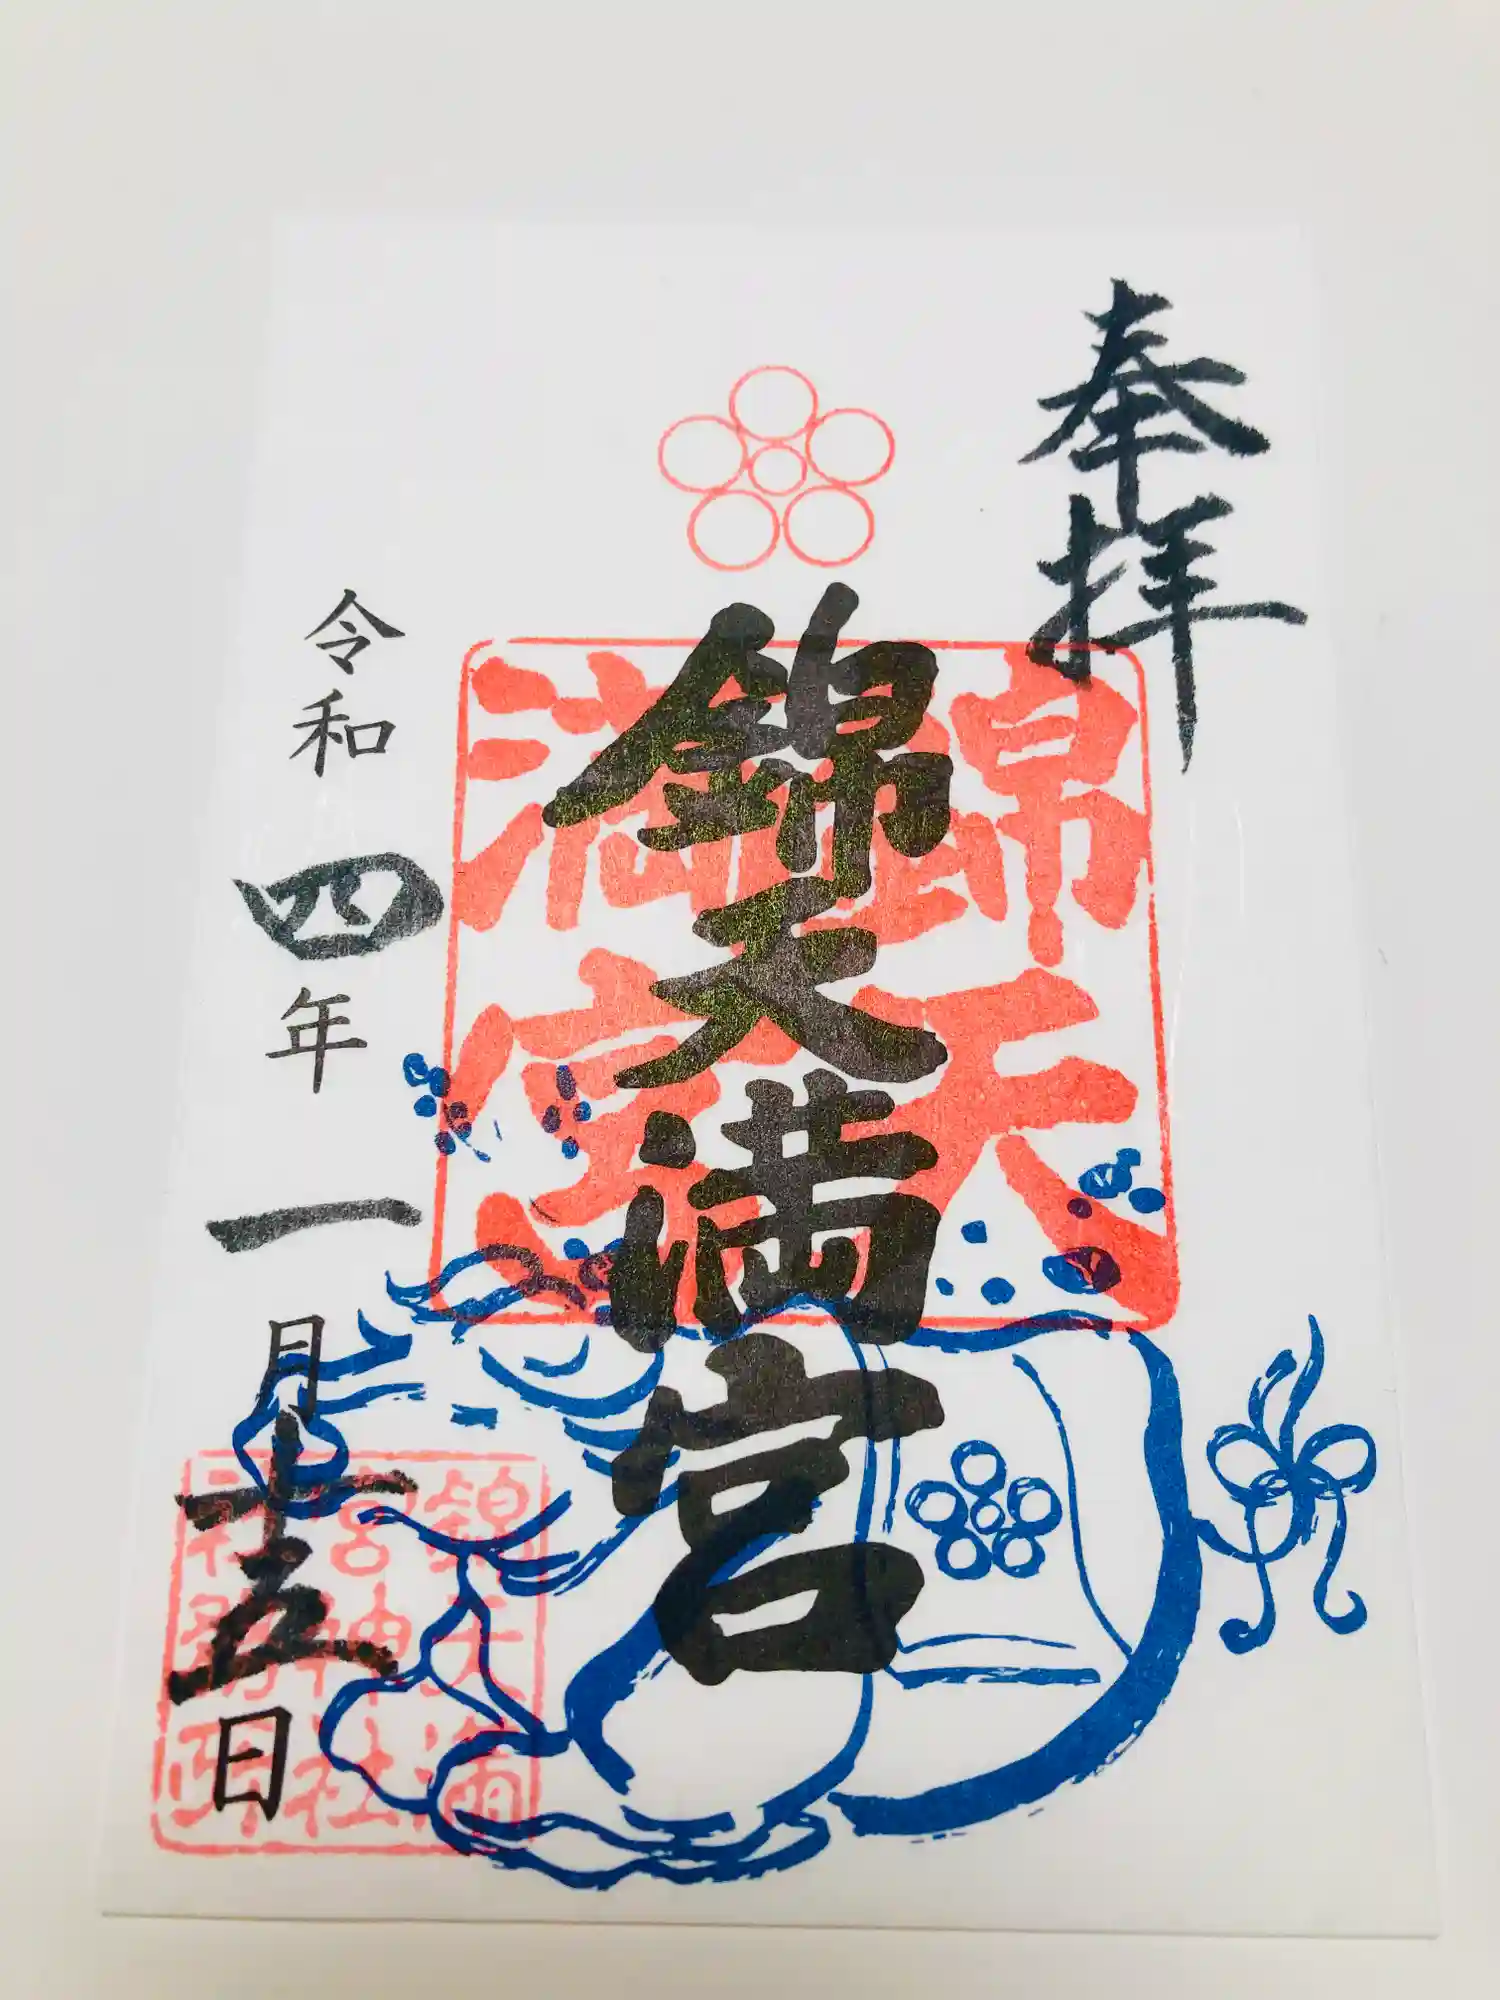 奉拝
錦天満宮
錦天
満宮
令和四年一月十五日
錦天満
宮神社
社務所印